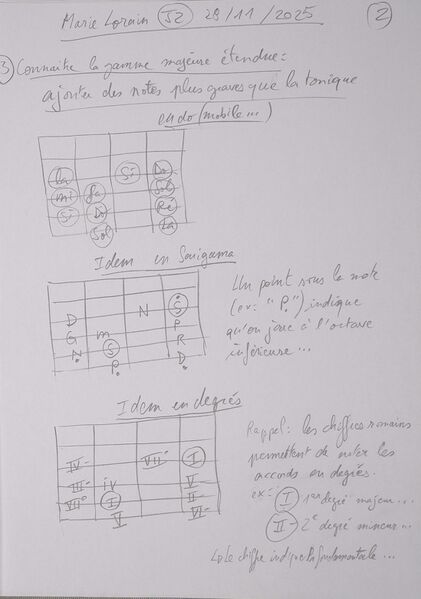 Marie Lorain J2 28/11/2025 2
3) Connaître la gamme majeure étendue:
ajouter des notes plus graves que la tonique
en do (mobile...)
Si Do
La Fa Sol
mi Do Ré
Si Sol La
Idem en Sarigama
N Ṡ
D P
G m R
Ṇ S Ḍ
Ṗ
Un point sous la note
(ex: "Ṗ") indique
qu'on joue à l'octave
inférieure...
Idem en degrés
IV- VII° I
III- IV V
VII° I II-
V VI-
Rappel: les chiffres romains
permettent de noter les
accords en degrés.
ex: I 1er degré majeur...
II- 2e degré mineur...
Le chiffre indique la fondamentale...